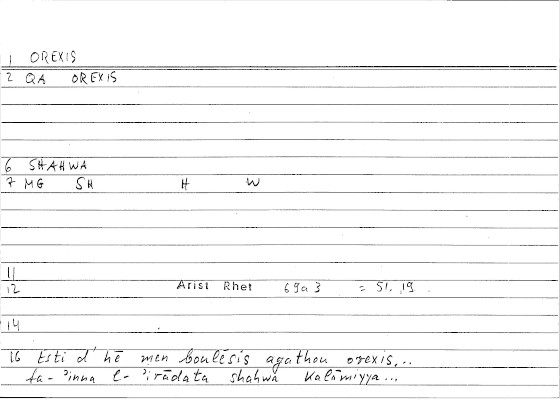 1 OREXIS
2 QA OREXIS
6 SHAHWA
7 MG SH H W
11
12 Arist Rhet 69a3 = 51,19.
14
16 Esti d' hē men boulēsis agathou orexis,..
fa-ʾinna l-ʾirādata shahwa kalāmiyya...